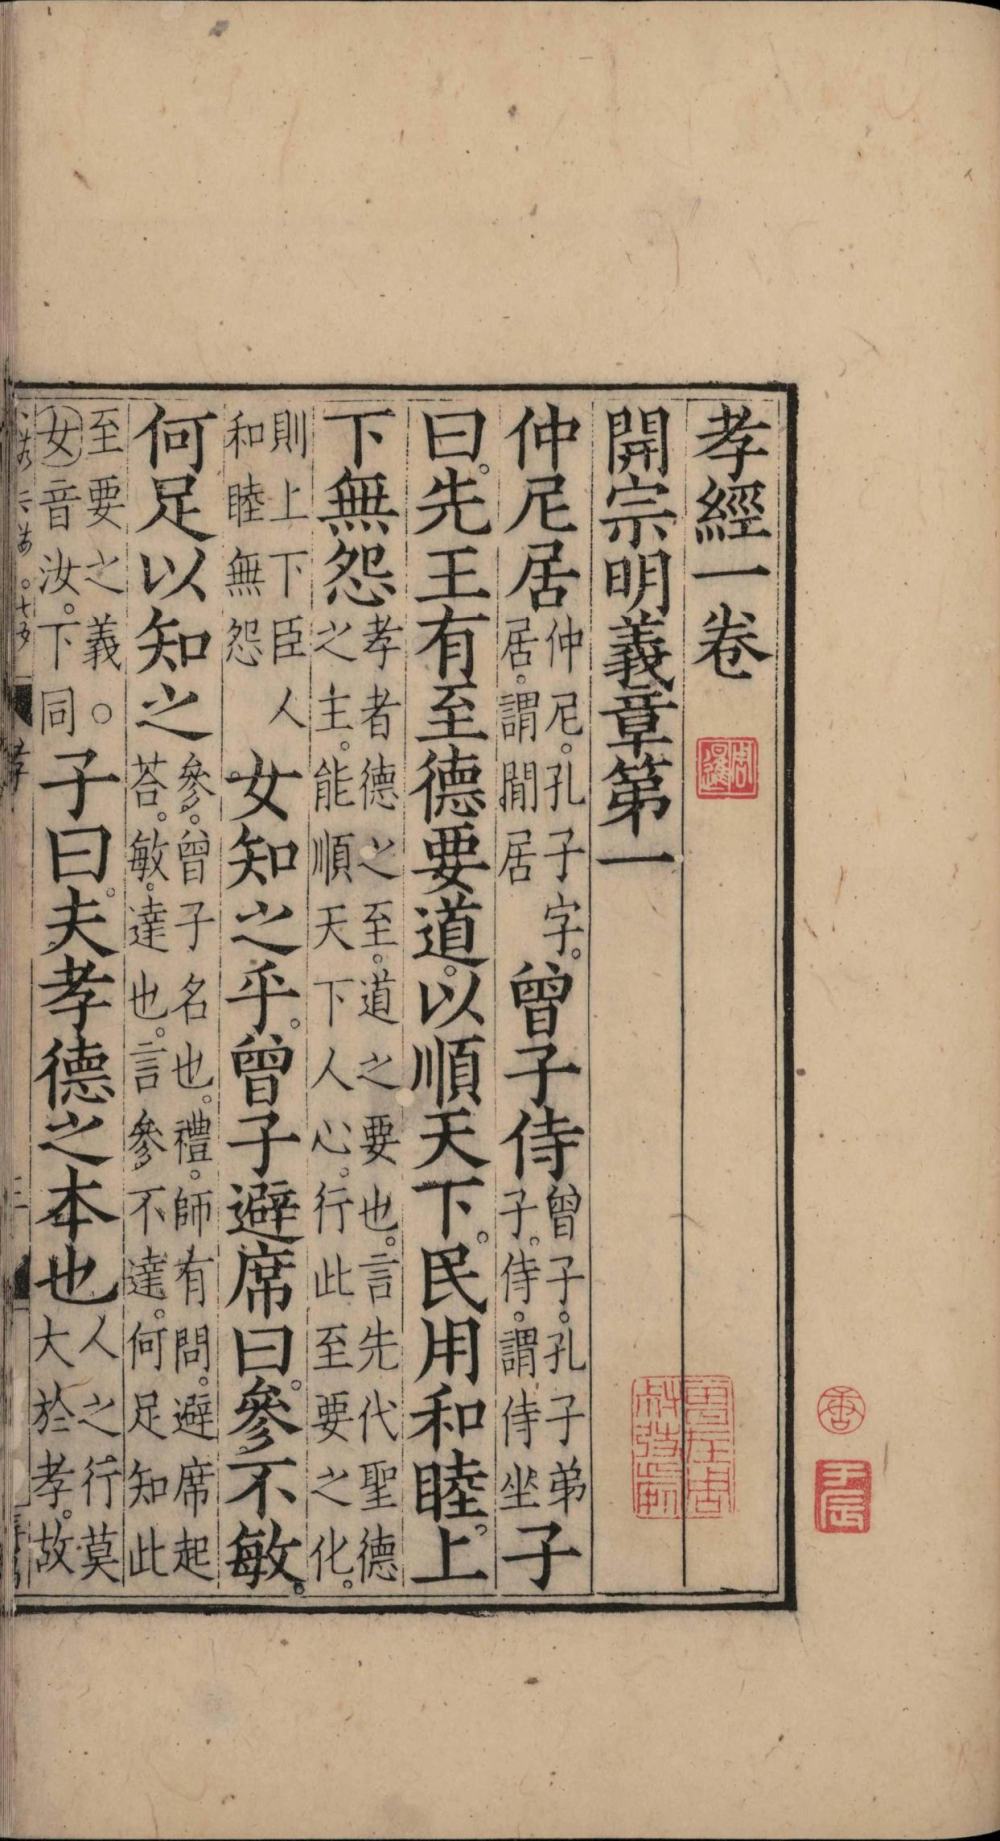 孝經一卷
開宗明義章第一
仲尼居仲尼。孔子字。居。謂閒居曾子侍曾子。孔子弟子。侍。謂侍坐子
曰。先王有至德要道。以順天下。民用和睦。上
下無怨孝者德之至。道之要也。言先代聖德之主。能順天下人心。行此至要之化。
則上下臣人和睦無怨女知之乎。曾子避席曰。參不敏。
何足以知之參。曾子名也。禮。師有問。避席起荅。敏。達也。言參不達。何足知此
至要之義。○女音汝。下同子曰。夫孝德之本也人之行莫大於孝。故
孝
周暹